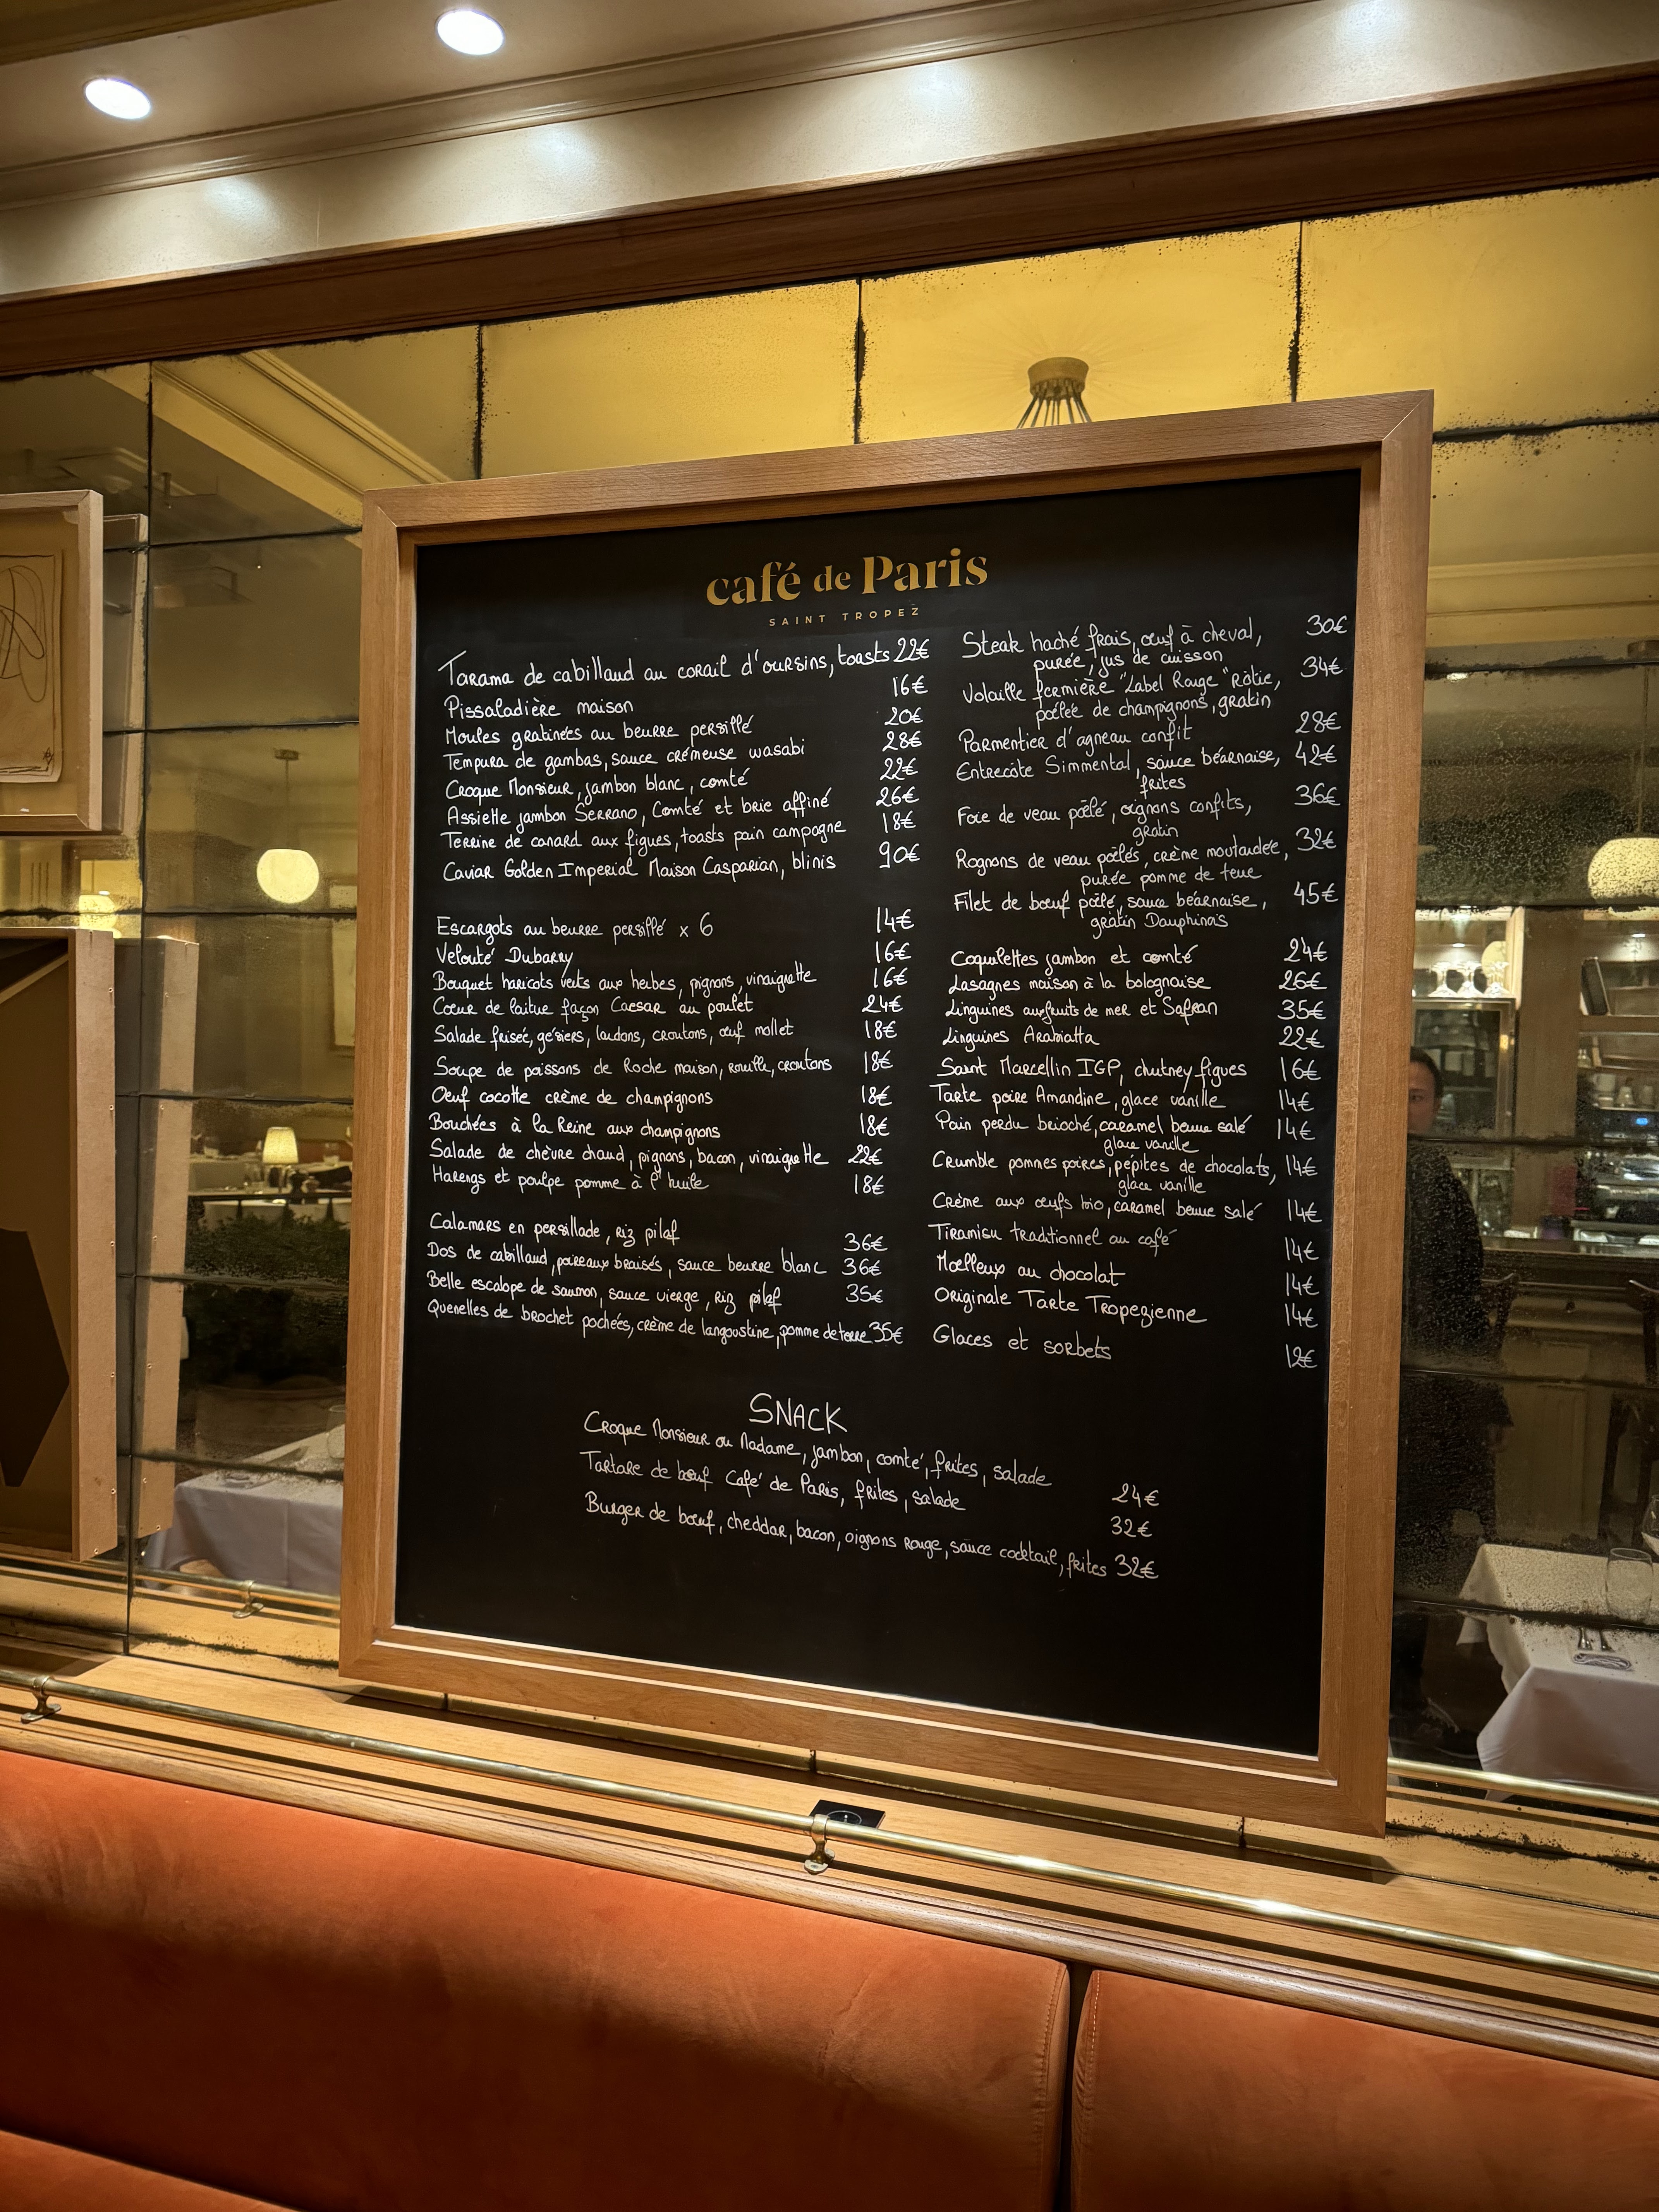 café de Paris
SAINT TROPEZ
Tarama de cabillaud au corail d'oursins, toasts 22€
Pissaladière maison 16€
Moules gratinées au beurre persillé 20€
Tempura de gambas, sauce crémeuse wasabi 28€
Croque Monsieur, jambon blanc, comté 22€
Assiette jambon Serrano, Comté et brie affiné 26€
Terrine de canard aux figues, toasts pain campagne 18€
Caviar Golden Imperial Maison Casparian, blinis 90€
Escargots au beurre persillé x 6 14€
Velouté Dubarry 16€
Bouquet haricots verts aux herbes, pignons, vinaigrette 16€
Cœur de laitue façon Caesar au poulet 24€
Salade frisée, gésiers, lardons, croutons, œuf mollet 18€
Soupe de poissons de Roche maison, rouille, croutons 18€
Œuf cocotte crème de champignons 18€
Bouchées à la Reine aux champignons 18€
Salade de chèvre chaud, pignons, bacon, vinaigrette 22€
Harengs et poulpe pomme à l'huile 18€
Calamars en persillade, riz pilaf 36€
Dos de cabillaud, poireaux braisés, sauce beurre blanc 36€
Belle escalope de saumon, sauce vierge, riz pilaf 35€
Quenelles de brochet pochées, crème de langoustine, pomme de terre 35€
Steak haché frais, œuf à cheval, 30€
purée, jus de cuisson
Volaille fermière "Label Rouge" Rôtie, 34€
poêlée de champignons, gratin
Parmentier d'agneau confit 28€
Entrecôte Simmental, sauce béarnaise, 42€
frites
Foie de veau poêlé, oignons confits, 36€
gratin
Rognons de veau poêlés, crème moutardée, 32€
purée pomme de terre
Filet de bœuf poêlé, sauce béarnaise, 45€
gratin Dauphinois
Coquillettes jambon et comté 24€
Lasagnes maison à la bolognaise 26€
Linguines aux fruits de mer et Safran 35€
Linguines Arabiatta 22€
Saint Marcellin IGP, chutney figues 16€
Tarte poire Amandine, glace vanille 14€
Pain perdu brioché, caramel beurre salé 14€
glace vanille
Crumble pommes poires, pépites de chocolats, 14€
glace vanille
Crème aux œufs bio, caramel beurre salé 14€
Tiramisu traditionnel au café 14€
Moelleux au chocolat 14€
Originale Tarte Tropezienne 14€
Glaces et sorbets 12€
SNACK
Croque Monsieur ou Madame, jambon, comté, frites, salade 24€
Tartare de bœuf Café de Paris, frites, salade 32€
Burger de bœuf, cheddar, bacon, oignons rouge, sauce cocktail, frites 32€